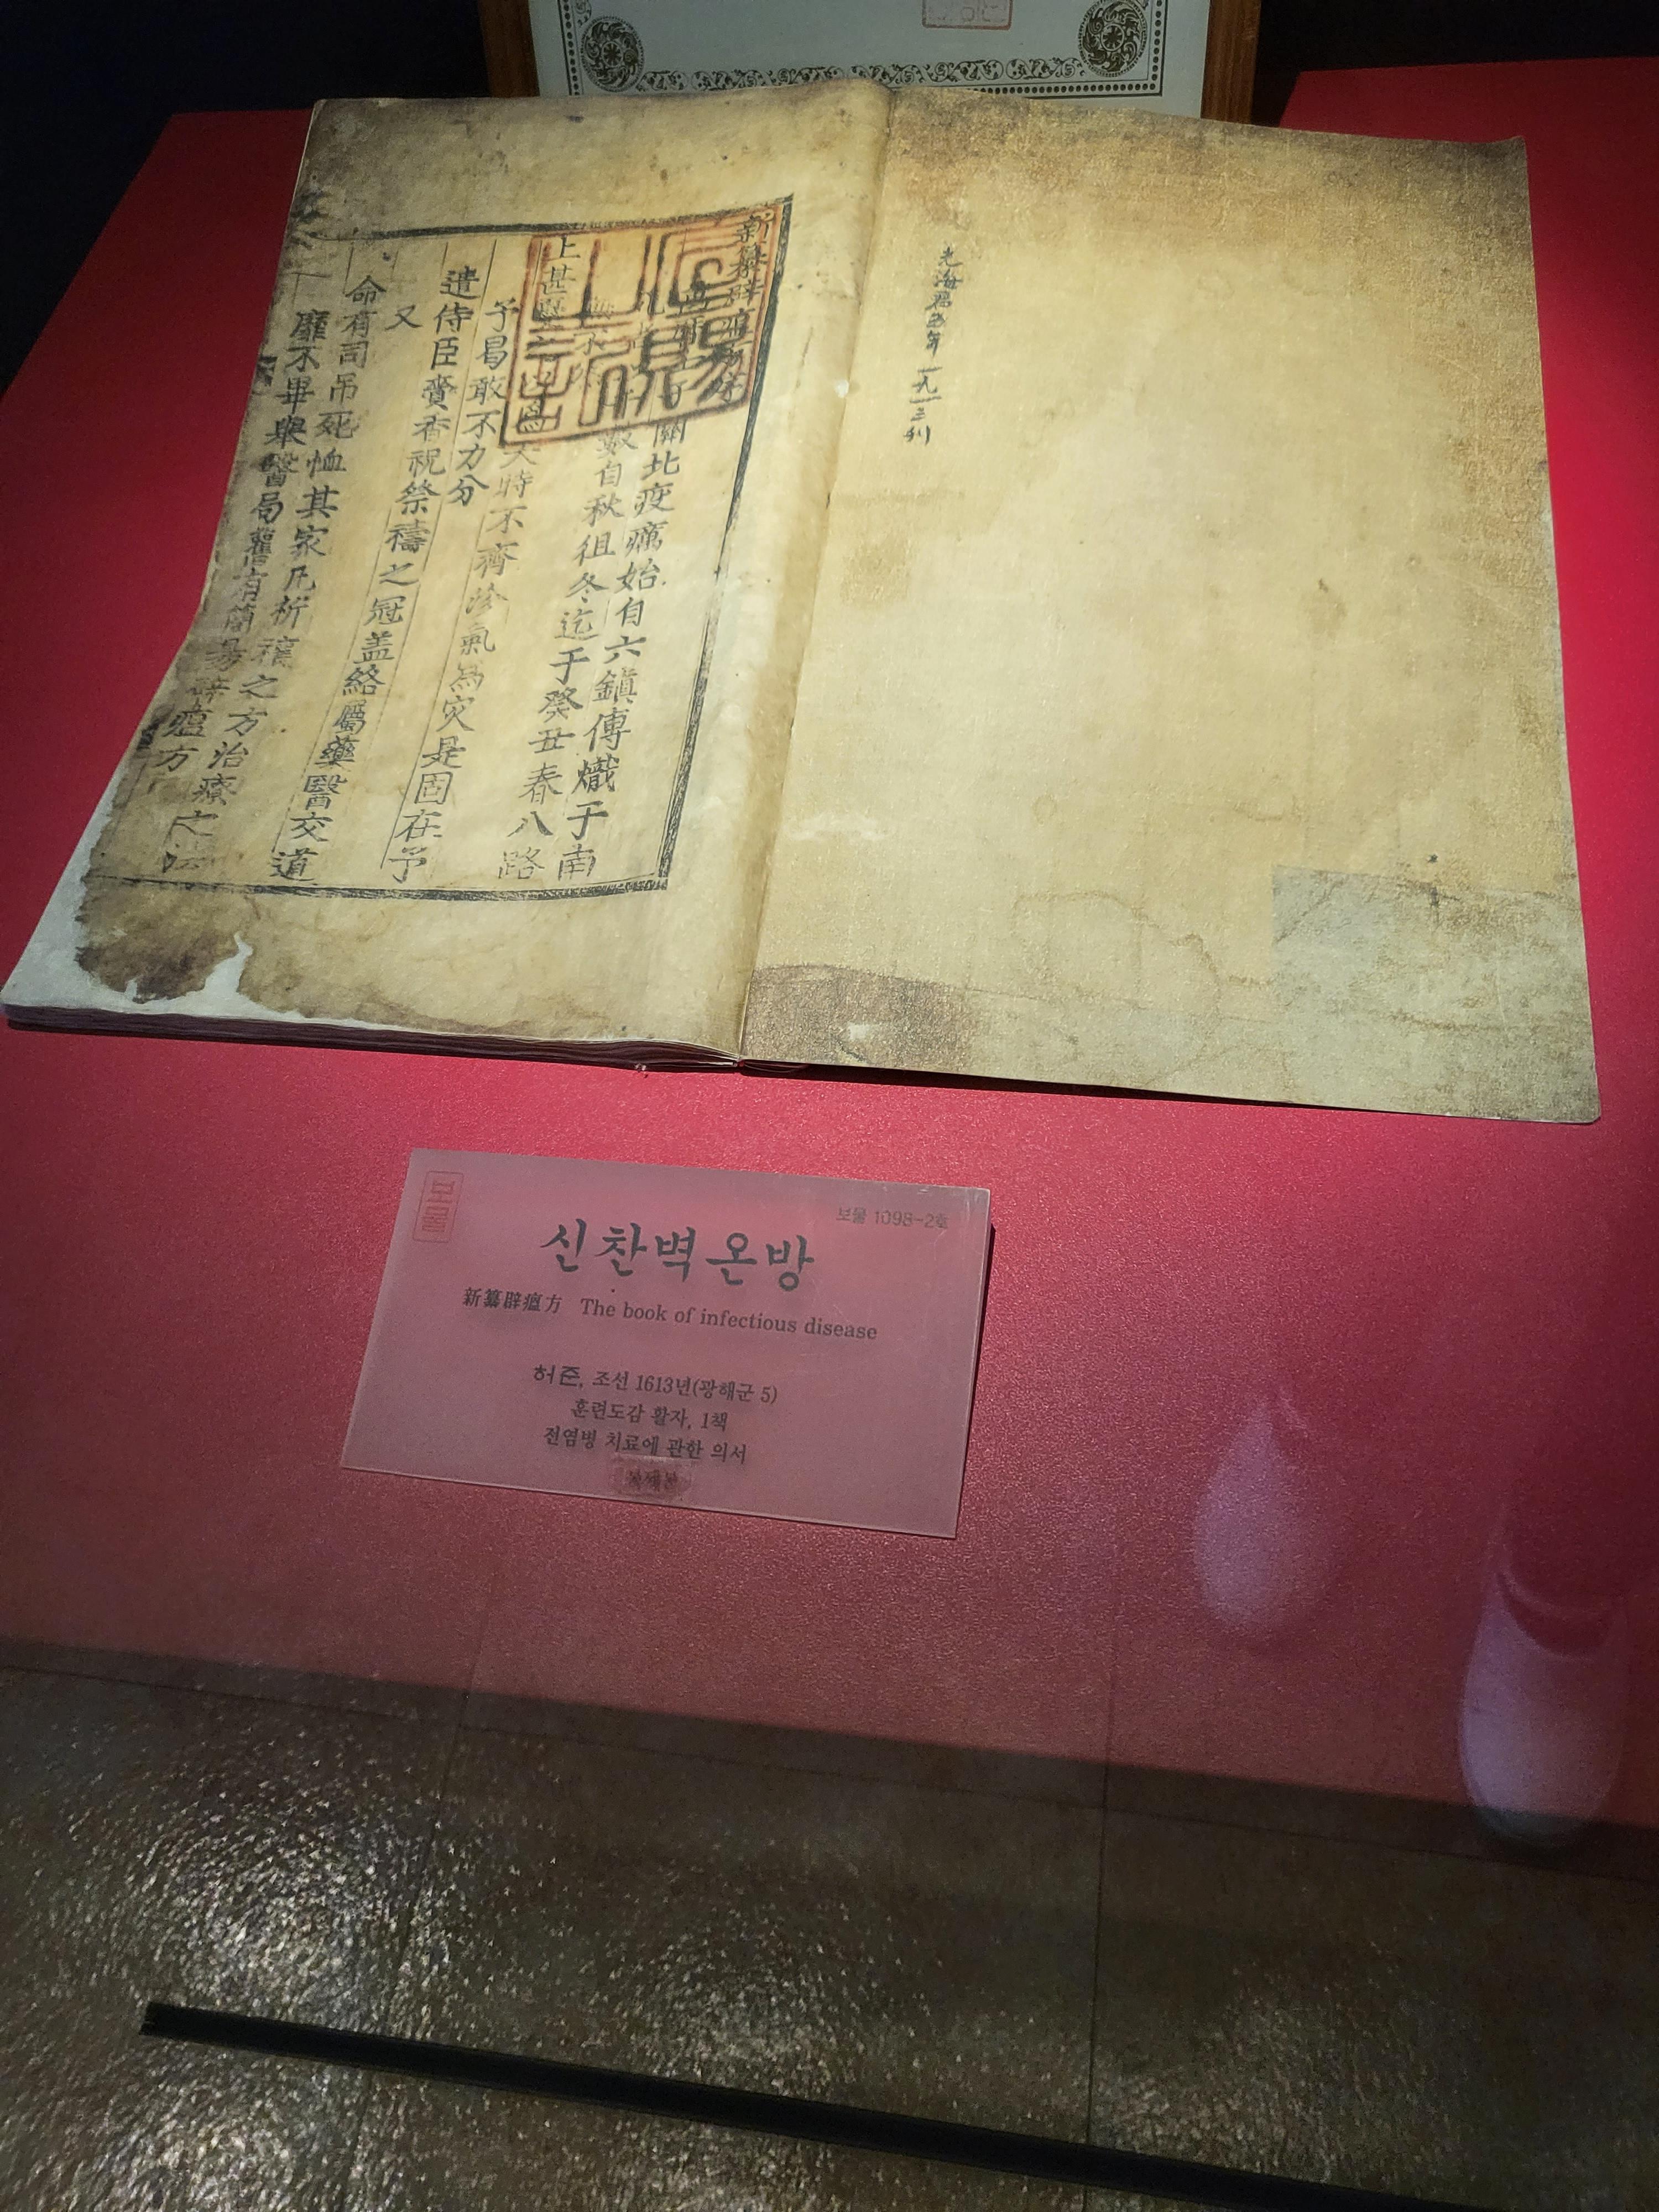 光海君五年
一九一三刊
關北疫癘始自六鎮傳熾于南
數自秋徂冬迄于癸丑春八路
上甚
天時不齊沴氣為灾是固在予
予曷敢不力分
遣侍臣賷香祝祭禱之冠盖絡屬藥醫交道
又
命有司吊死恤其家凡祈禳之方治療之法
靡不畢舉醫局舊有簡易辟瘟方
보물
보물 1098-2호
신찬벽온방
新纂辟瘟方 The book of infectious disease
허준, 조선 1613년(광해군 5)
훈련도감 활자, 1책
전염병 치료에 관한 의서
복제본